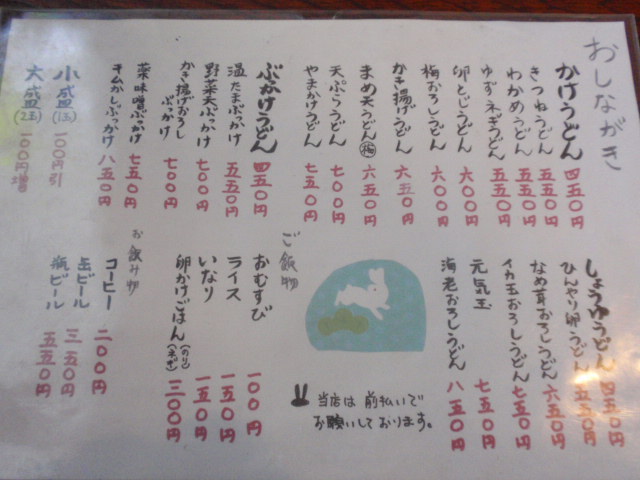 おしながき
かけうどん 四五〇円
きつねうどん 五五〇円
わかめうどん 五五〇円
ゆずネギうどん 五五〇円
卵とじうどん 六〇〇円
梅おろしうどん 六〇〇円
かき揚げうどん 六五〇円
まめ天うどん 六五〇円
天ぷらうどん 七〇〇円
やまかけうどん 七五〇円
ぶかけうどん 四五〇円
温たまぶっかけ 五五〇円
野菜天ぶっかけ 七〇〇円
かき揚げおろしぶっかけ 七〇〇円
菜味噌ぶっかけ 七五〇円
キムかしぶっかけ 八五〇円
小盛(1玉) 一〇〇円引
大盛(2玉) 一〇〇円増
しょうゆうどん 四五〇円
ひんやり卵うどん 五五〇円
なめ茸おろしうどん 六五〇円
イカ玉おろしうどん 七五〇円
元気玉 七五〇円
海老おろしうどん 八五〇円
当店は前払いで
お願いしております。
ご飯物
おむすび 一〇〇円
ライス 一五〇円
いなり 一五〇円
卵かけごはん(のり)(ネギ) 三〇〇円
お飲み物
コーヒー 二〇〇円
缶ビール 三五〇円
瓶ビール 五五〇円